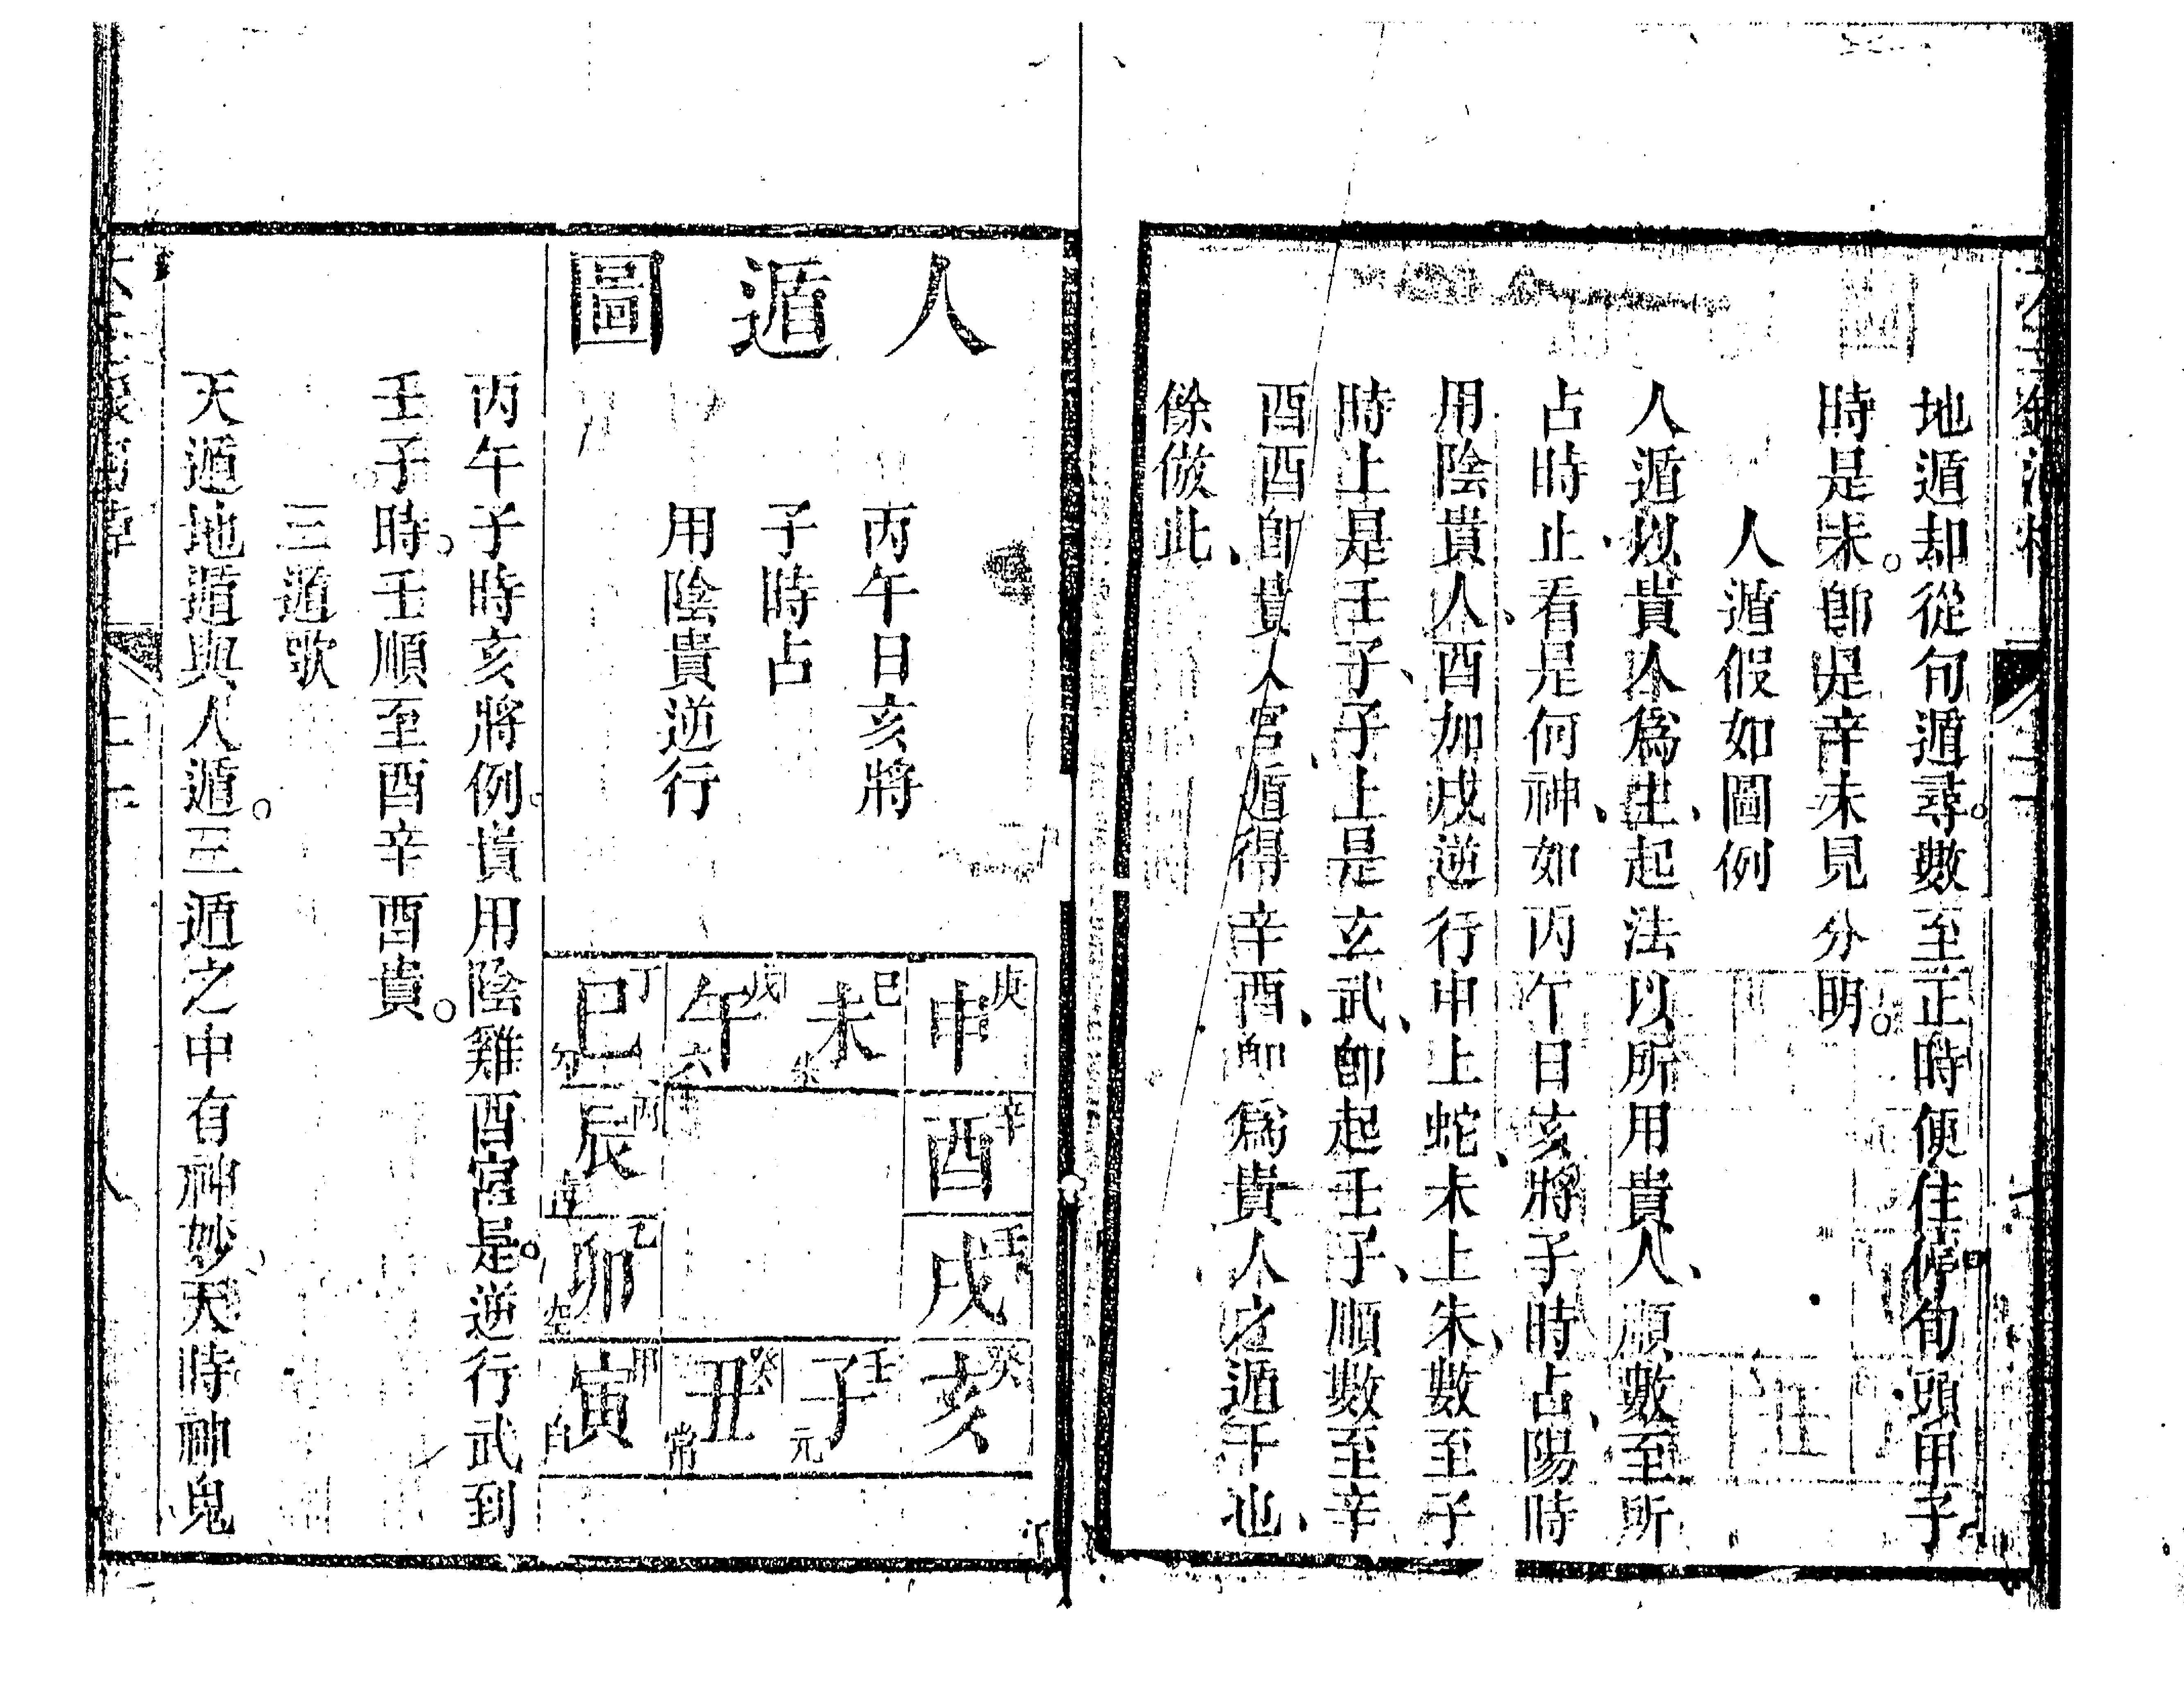 地遁却從旬遁尋。數至正時便住停旬頭甲子
時是未。卽是辛未見分明。
人遁假如圖例
人遁以貴人爲生、起法以所用貴人、順數至所
占時止看是何神、如丙午日亥將子時占、陽時
用陰貴人、酉加戌逆行申上蛇、未上朱、數至子
時上是壬子、子上是玄武、卽起壬子、順數至辛
酉酉卽貴人宮、遁得辛酉、卽爲貴人之遁干也、
餘倣此、
人遁圖
丙午日亥將
子時占
用陰貴逆行
庚申
己未朱
戊午六
丁巳勾
辛酉
丙辰
壬戌
乙卯空
癸亥
壬子元
癸丑常
甲寅白
丙午子時亥將例。貴用陰雞酉宮是。逆行武到
壬子時。壬順至酉辛酉貴。
三遁歌
天遁地遁與人遁。三遁之中有神妙、天時神鬼